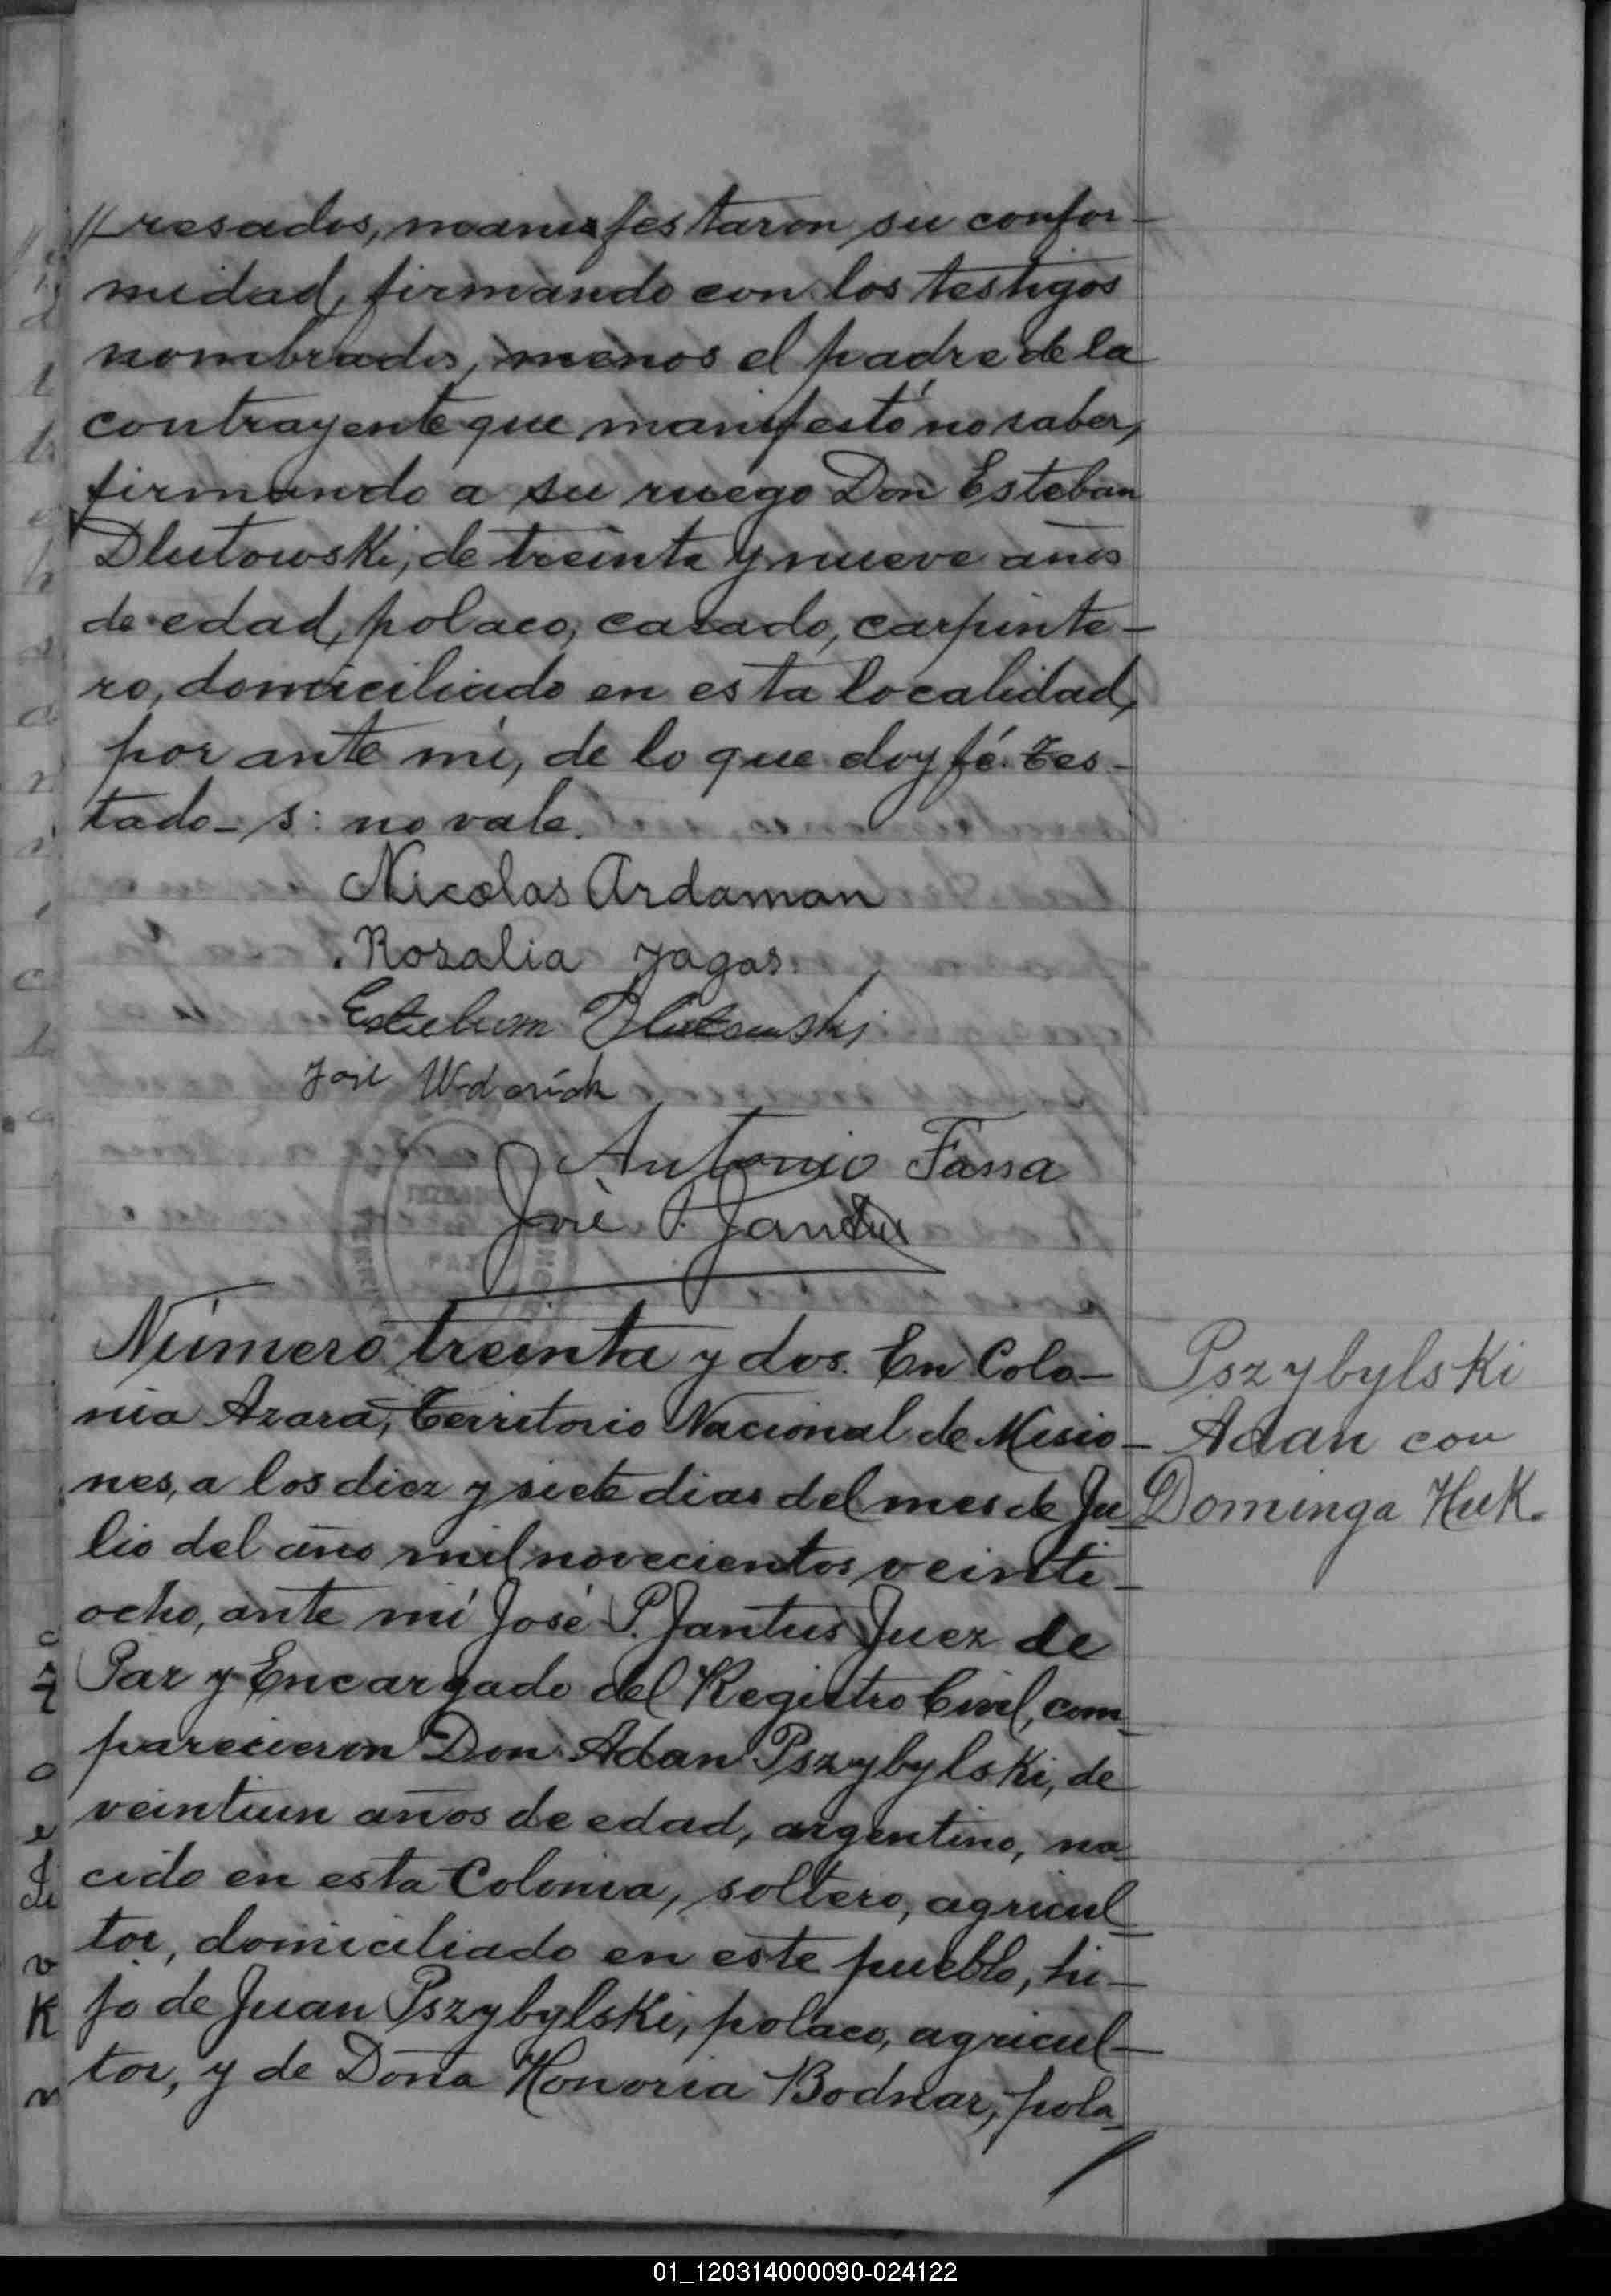 //resados, manifestaron su confor-
midad, firmando con los testigos
nombrados, menos el padre de la
contrayente que manifestó no saber,
firmando a su ruego Don Esteban
Dlutowski, de treinta y nueve años
de edad, polaco, casado, carpinte-
ro, domiciliado en esta localidad,
por ante mi, de lo que doy fé. Tes-
tado- s: no vale.
Nicolas Ardaman
Rosalia Jagas
Esteban Dlutowski
José
Antonio Fassa
José P. Jantus
JUZGADO
PAZ
Número treinta y dos. En Colo-
nia Azara, Territorio Nacional de Misio-
nes, a los diez y siete dias del mes de Ju-
lio del año mil novecientos veinti-
ocho, ante mí José P. Jantus Juez de
Paz y Encargado del Registro Civil, com-
parecieron Don Adan Pszybylski, de
veintiun años de edad, argentino, na-
cido en esta Colonia, soltero, agricul-
tor, domiciliado en este pueblo, hi-
jo de Juan Pszybylski, polaco, agricul-
tor, y de Doña Honoria Bodnar, pola-
Pszybylski
Adan con
Dominga Huk.
01_120314000090-024122